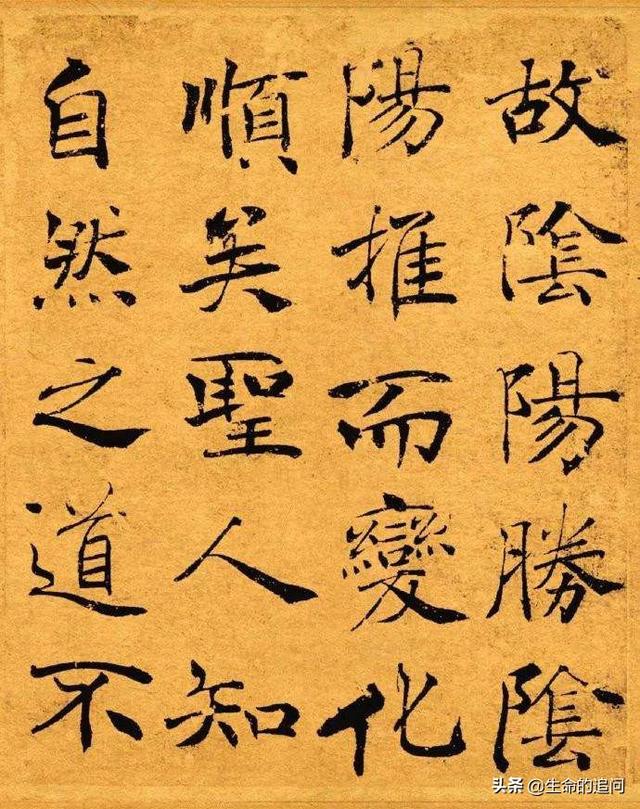 故陰陽勝陰
陽推而變化
順矣聖人知
自然之道不
头条 @生命的追问